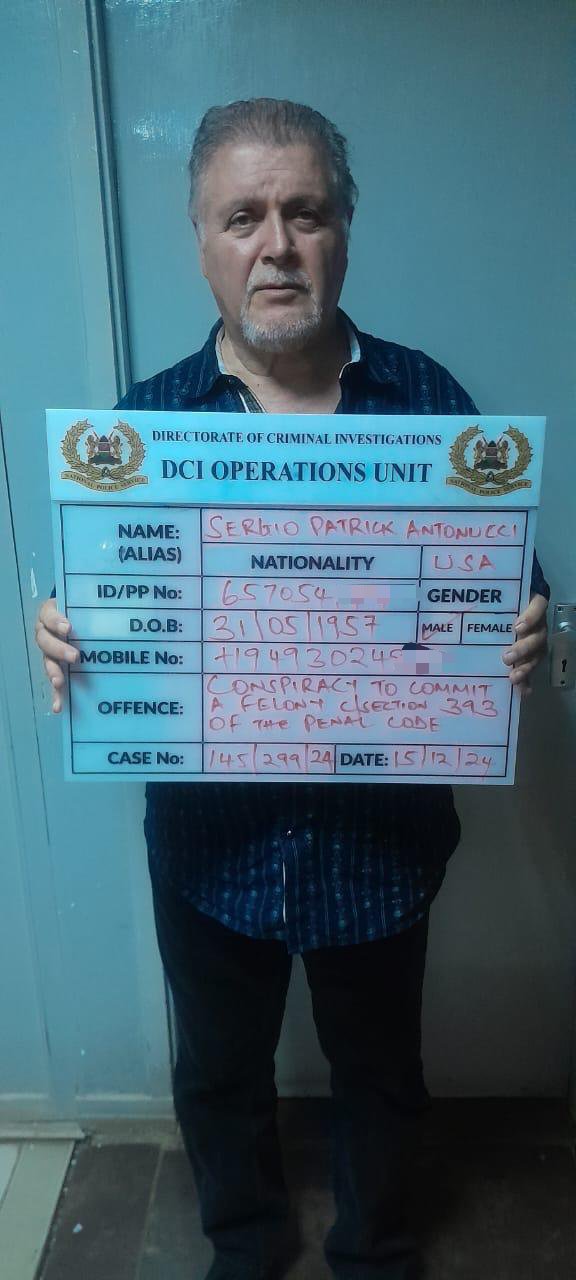 DIRECTORATE OF CRIMINAL INVESTIGATIONS
DCI OPERATIONS UNIT
NATIONAL POLICE SERVICE
NATIONAL POLICE SERVICE
NAME: SERGIO PATRICK ANTONUCCI
(ALIAS)
NATIONALITY USA
ID/PP No: 657054 GENDER
D.O.B: 31/05/1957 MALE FEMALE
MOBILE No: +19493024
OFFENCE: CONSPIRACY TO COMMIT
A FELONY C/SECTION 393
OF THE PENAL CODE
CASE No: 145/299/24 DATE: 15/12/24